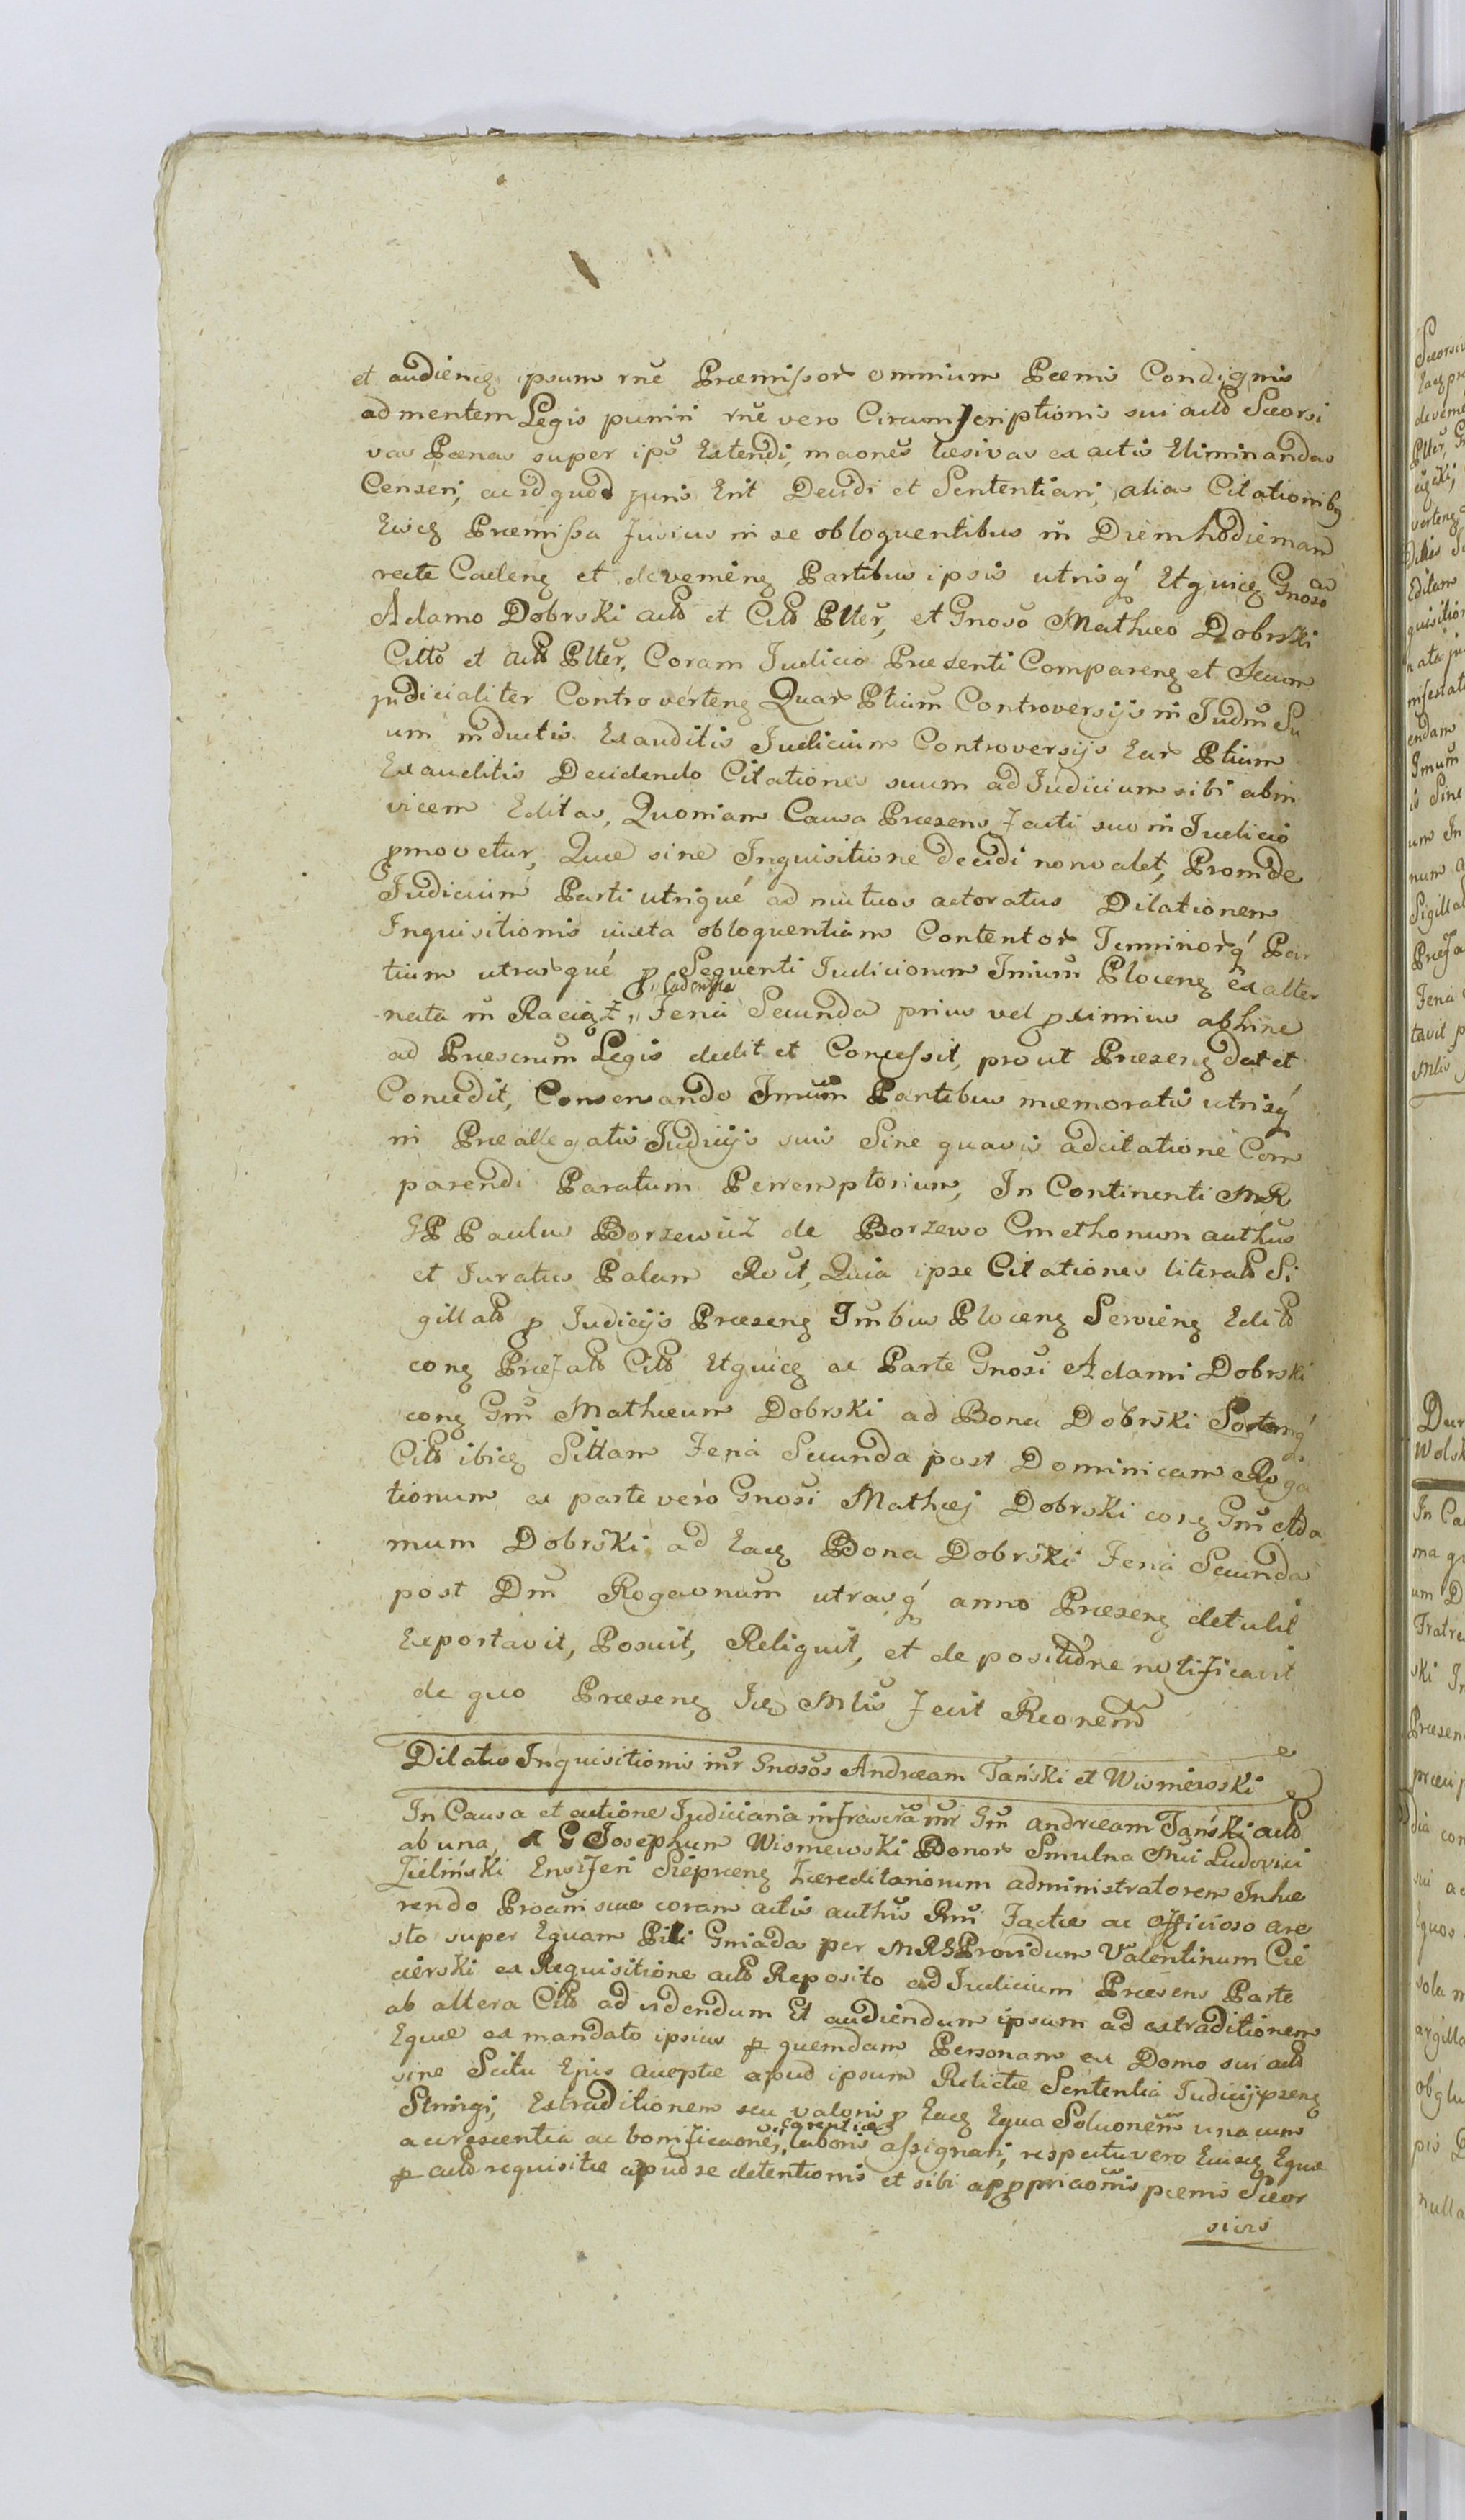 et audiencꝫ ipsum rñe Præmissorꝝ omnium Pœnis Condignis
ad mentem Legis puniri rñe vero Circumscriptionis sui actõ Sæorsi
vas Pœnas super ipõ Extendi, maones læsivas ex actis Eliminandas
Censeri, ac id quod juris Erit Decidi et Sententiari, alias Citationibꝫ
Eiscꝫ Præmissa fusius in se obloquentibus in Diem hodiernam
recte Cadenꝫ et devenienꝫ Partibus ipsis utrisq́ Etquicꝫ Gnoso
Adamo Dobrski actõ et Citõ Plter, et Gnoso Mathæo Dobrski
Cittõ et actõ Plter, Coram Iudicio Præsenti Comparenꝫ et Secum
judicialiter Controvertenꝫ Quarꝝ Ptium Controversijs in Iudm̃ Su
um inductis Exauditis Iudicium Controversijs Earꝝ Ptium
Exauditis Decidendo Citationes suum ad Iudicium sibi abin
vicem Editas, Quoniam Causa Præsens facti suo in Iudicio
promovetur, Quæ sine Inquisitione decidi non valet, Proinde
Iudicium Parti utrique ad mutuos actoratus Dilationem
Inquisitionis iuxta obloquentiam Contentorꝝ Terminorꝝq́ Par
tium utrarꝝque pro Sequenti Iudiciorum Trium Plocenꝫ ex alter
nata in Raciąż, Cadentia Feria Secunda prius vel proximius abhinc
ad Præscrum Legis dedit et Concessit, prout Præsenꝫ dat et
Concedit, Conservando Tmum Partibus memoratis utrisq́
in Præallegatis Iudicijs suis Sine quavis adcitatione Com
parendi Paratum Peremptorium, In Continenti MR
GP Paulus Borzewicz de Borzewo Cmethonum authus
et Iuratus Palam Rcvit, Quia ipse Citationes literalõ Si
gillalõ p Iudicijs Præsenꝫ Tmibus Plocenꝫ Servienꝫ Editõ
conꝫ Præfatõ Citõ Etquicꝫ ac Parte Gnosi Adami Dobrski
conꝫ Gm̃ Mathæum Dobrski ad Bona Dobrski Sortemq́
Citõ ibicꝫ Sittam Feria Secunda post Dominicam Roga
tionum ex parte vero Gnosi Mathæj Dobrski conꝫ Gm̃ Ada
mum Dobrski ad Eacꝫ Bona Dobrski Feria Secunda
post Dm̃ Rogaonum utrasq́ anno Præsenꝫ detulit
Exportavit, Posuit, Reliquit, et de positione notificavit
de quo Præsenꝫ Icꝫ Mlis fecit Rconem̃
Dilatio Inquisitionis inr̃ Gnosos Andream Tański et Wisniewski
In Causa et actione Iudiciaria infrascra inr̃ Gm̃ Andræam Tański actõ
ab una, a G Josephum Wisniewski Bonorꝝ Smulna Mci Ludovici
Zieliński Ensiferi Sieprcenꝫ Hæreditariorum administratorem Inhæ
rendo Procam̃ suæ coram actis authis Rm̃i Factæ ac officioso are
sto super Equam Pili Gniada per MRGProvidum Valentinum Cie
cierski ex Requisitione actõ Reposito ad Iudicium Præsens Parte
ab altera Citõ ad videndum Et audiendum ipsum ad extraditionem
Equæ ex mandato ipsius p quemdam Personam ex Domo sui actõ
sine Scitu Ejus acceptæ apud ipsum Relictæ Sententia Iudicij pzenꝫ
Stringi, Extraditionem seu valoris p Eacꝫ Equa Soluonem̃ una cum
accrescentia ac bonificaone, carentiæ laboris assignari, respectu vero Eiuscꝫ Equæ
p actõ requisitæ apud se detentionis et sibi appropriaonis pœnis Sæor
sivis